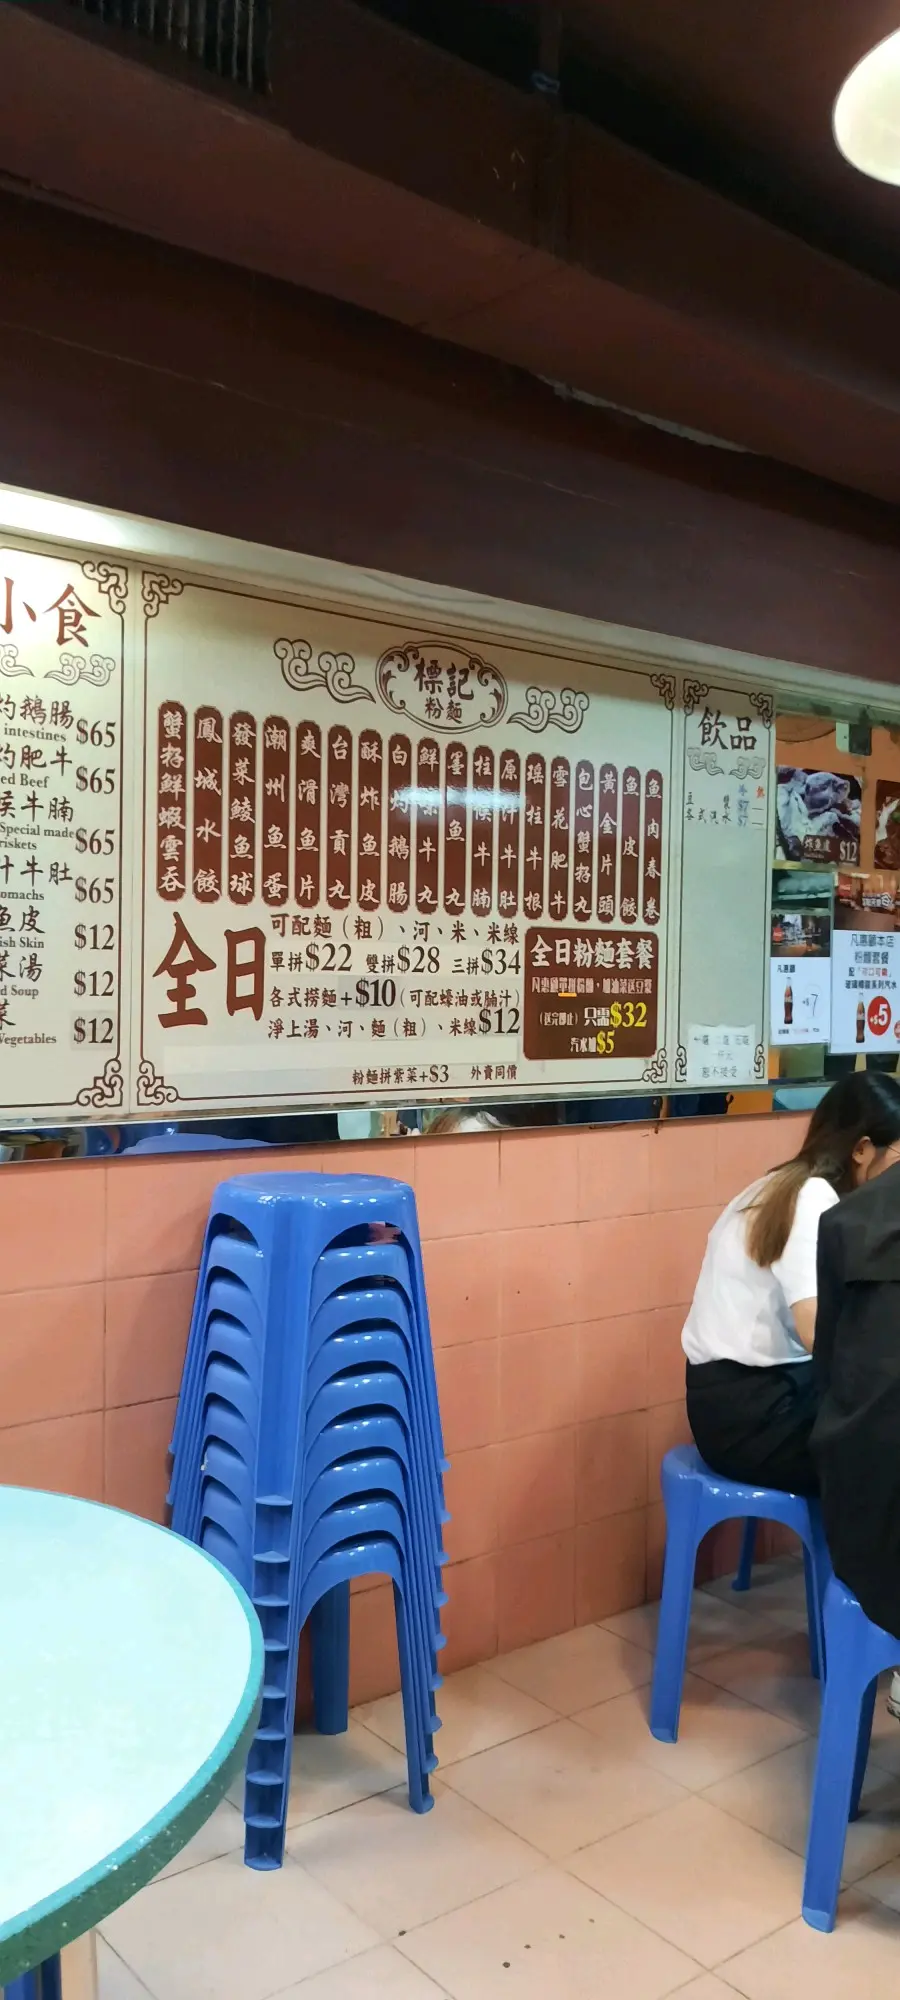 小食
灼鵝腸 $65
intestines
灼肥牛 $65
ed Beef
侯牛腩
Special made $65
riskets
汁牛肚 $65
omachs
魚皮 $12
ish Skin
菜湯 $12
d Soup
菜 $12
Vegetables
標記
粉麵
蟹籽鮮蝦雲吞
鳳城水餃
發菜鯪魚球
潮州魚蛋
爽滑魚片
台灣貢丸
酥炸魚皮
白灼鵝腸
鮮牛丸
墨魚丸
柱侯牛腩
原汁牛肚
瑤柱牛根
雪花肥牛
包心蟹籽丸
黃金片頭
魚皮餃
魚肉春卷
全日
可配麵（粗）、河、米、米線
單拼$22 雙拼$28 三拼$34
各式撈麵+$10（可配蠔油或腩汁）
淨上湯、河、麵（粗）、米線$12
粉麵拼紫菜+$3 外賣同價
全日粉麵套餐
凡惠顧單拼粉麵，加油菜送豆漿
（送完即止）只需$32
汽水加$5
飲品
冷 熱
豆漿 $7 —
各式汽水 $7 —
恕不接受
炸魚皮 $12
凡惠顧
$7
凡惠顧本店
粉麵套餐
配「可口可樂」
玻璃樽裝系列汽水
+$5